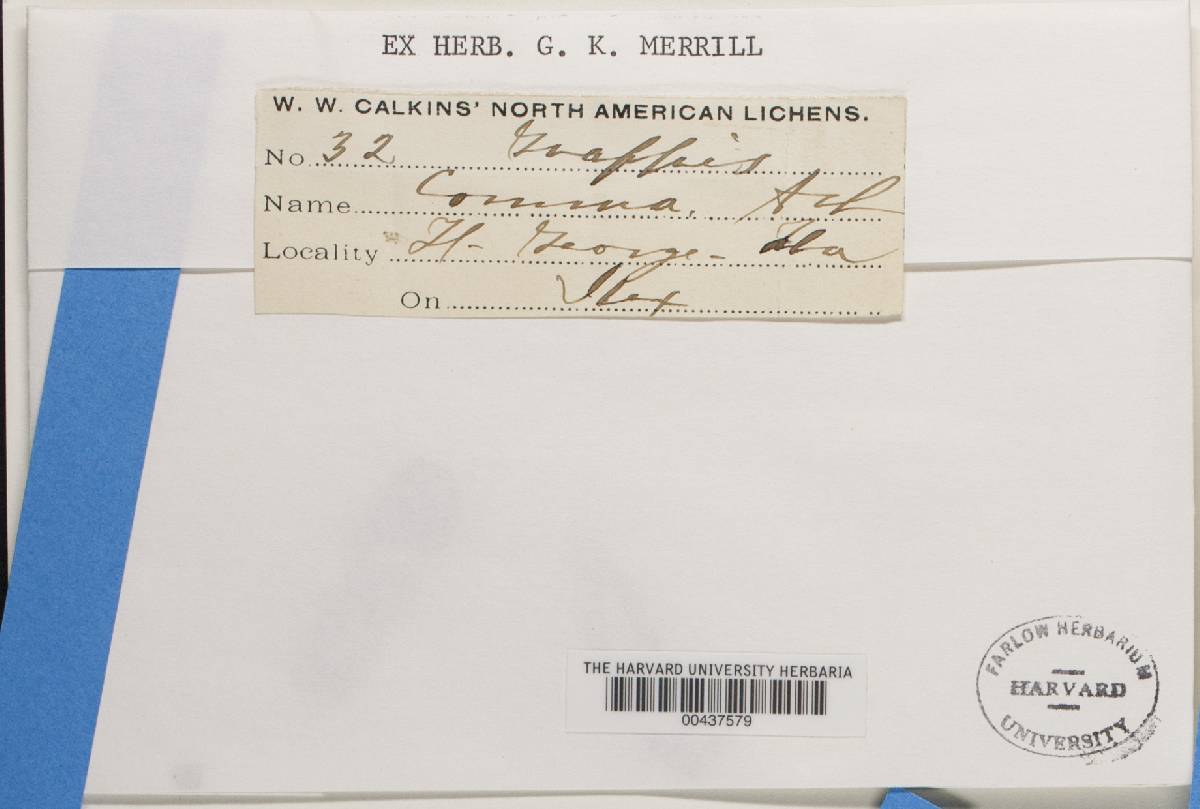 EX HERB. G. K. MERRILL
W. W. CALKINS' NORTH AMERICAN LICHENS.
No. 32 Graphis
Name Comma, Ach
Locality Ft- George- Fla
On Ilex
THE HARVARD UNIVERSITY HERBARIA
00437579
FARLOW HERBARIUM
HARVARD
UNIVERSITY